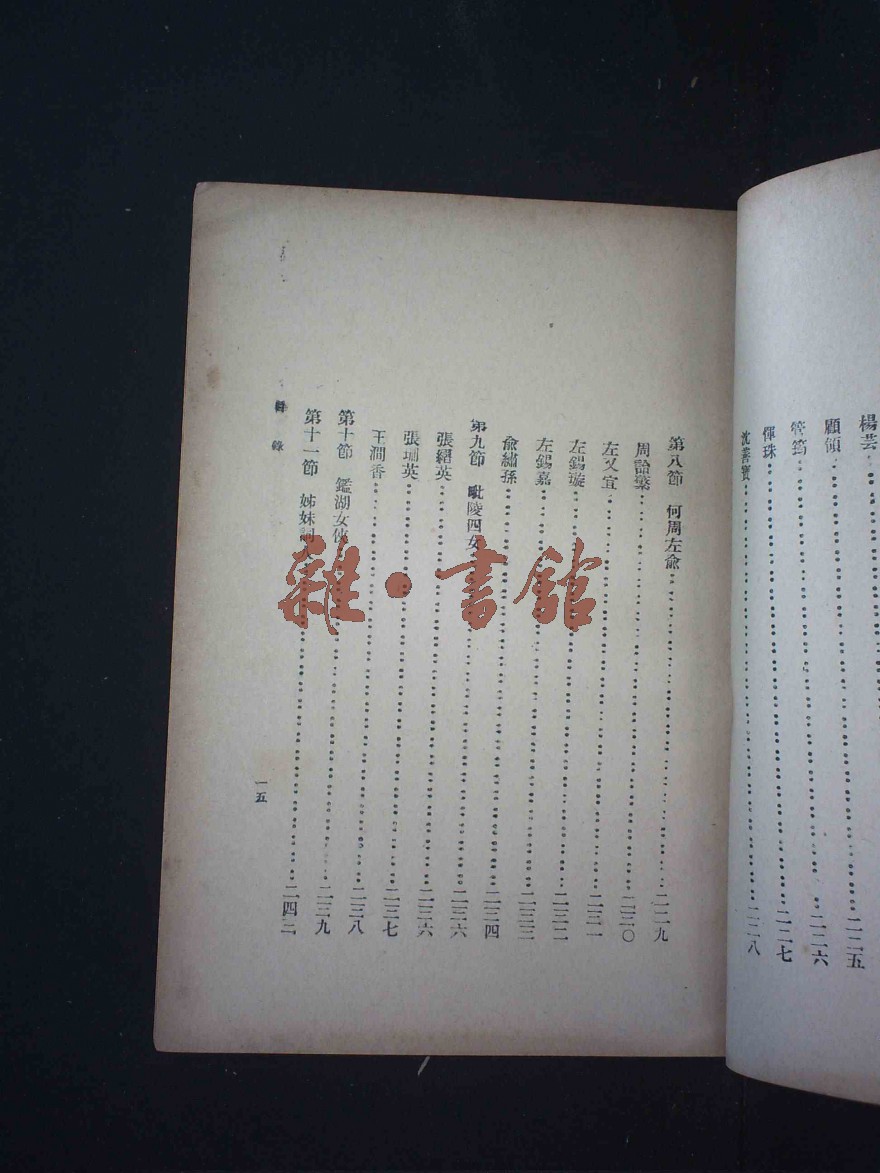 楊芸……二二五
顧……二二六
管筠……二二七
惲珠……二二八
沈善寶……
第八節 何周左俞……二二九
周詒蘩……二三〇
左又宜……二三一
左錫璇……二三二
左錫嘉……二三三
俞繡孫……二三四
第九節 毗陵四女……二三六
張英……二三六
張珊英……二三七
王澗香……二三八
第十節 鑑湖女俠……二三九
第十一節 姊妹詞……二四二
目錄
一五
雜·書館